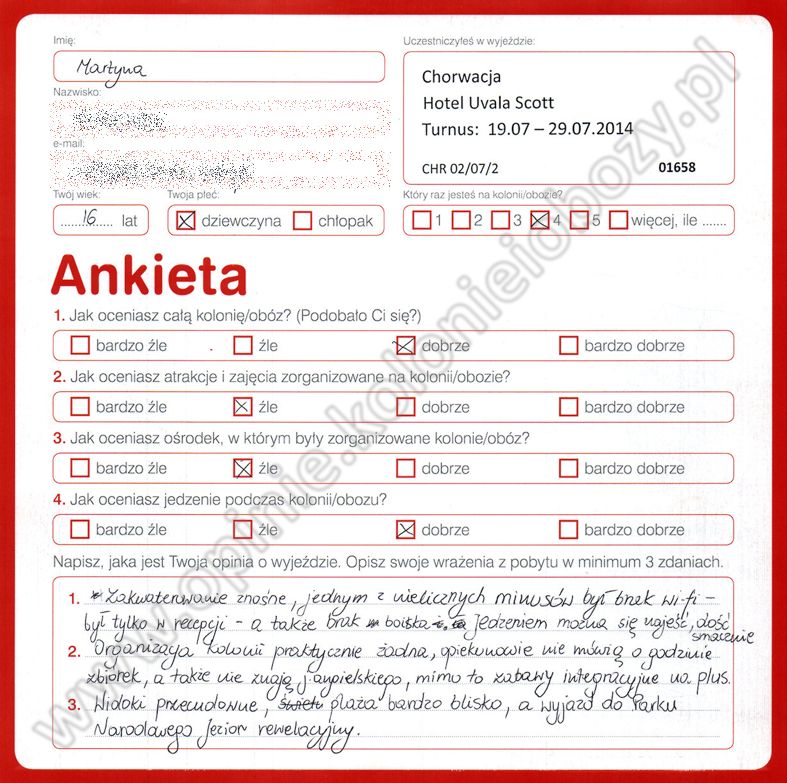 Imię:
Martyna
Nazwisko:
e-mail:
Twój wiek:
16 lat
Twoja płeć:
dziewczyna chłopak
Uczestniczyłeś w wyjeździe:
Chorwacja
Hotel Uvala Scott
Turnus: 19.07 – 29.07.2014
CHR 02/07/2 01658
Który raz jesteś na kolonii/obozie?
1 2 3 4 5 więcej, ile .......
Ankieta
1. Jak oceniasz całą kolonię/obóz? (Podobało Ci się?)
bardzo źle źle dobrze bardzo dobrze
2. Jak oceniasz atrakcje i zajęcia zorganizowane na kolonii/obozie?
bardzo źle źle dobrze bardzo dobrze
3. Jak oceniasz ośrodek, w którym były zorganizowane kolonie/obóz?
bardzo źle źle dobrze bardzo dobrze
4. Jak oceniasz jedzenie podczas kolonii/obozu?
bardzo źle źle dobrze bardzo dobrze
Napisz, jaka jest Twoja opinia o wyjeździe. Opisz swoje wrażenia z pobytu w minimum 3 zdaniach.
1. Zakwaterowanie znośne, jednym z nielicznych minusów był brak wi-fi -
był tylko w recepcji - a także brak boiska. Jedzeniem można się najeść, dość
smacznie
2. Organizacja kolonii praktycznie żadna, opiekunowie nie mówią o godzinie
zbiórek, a także nie znają j. angielskiego, mimo to zabawy integracyjne na plus.
3. Widoki przecudowne, plaża bardzo blisko, a wyjazd do Parku
Narodowego Jezior rewelacyjny.
www.opinie.kolonieiobozy.pl